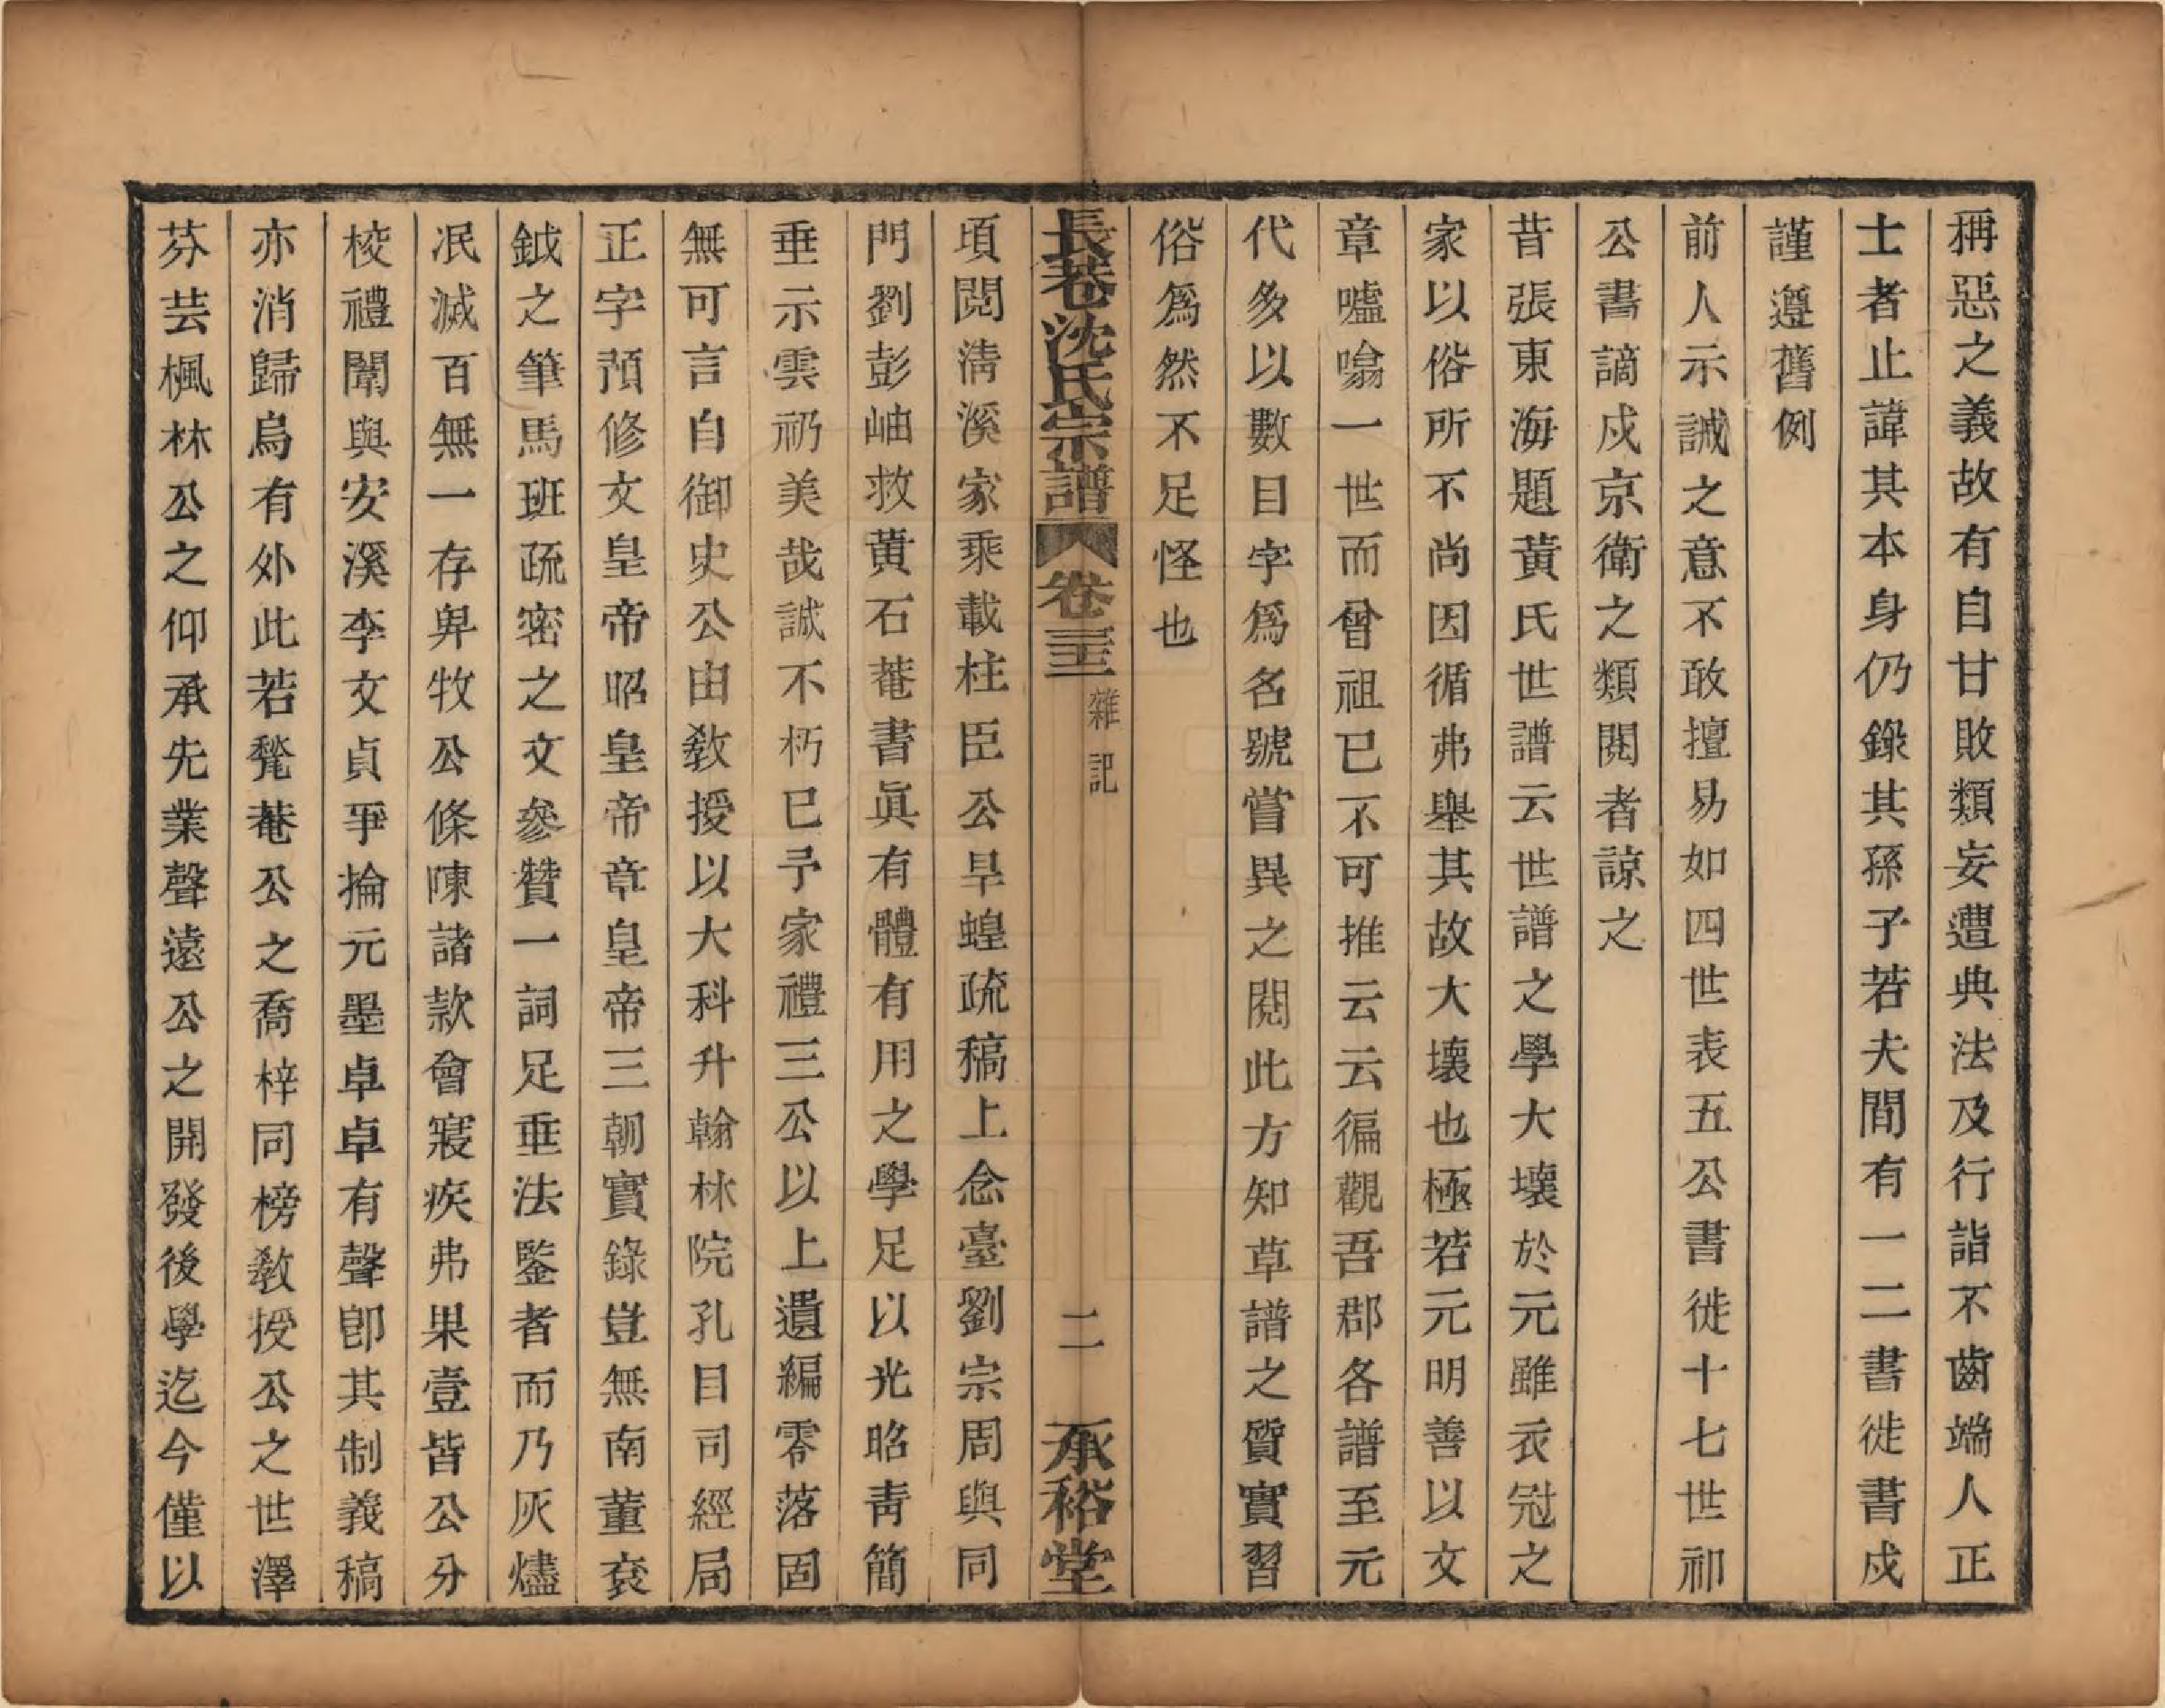 稱惡之義故有自甘敗類妄遭典法及行詣不齒端人正
士者止諱其本身仍錄其孫子若夫間有一二書徙書戍
謹遵舊例
前人示誡之意不敢擅易如四世表五公書徙十七世祁
公書謫戍京衛之類閱者諒之
昔張東海題黃氏世譜云世譜之學大壞於元雖衣冠之
家以俗所不尚因循弗舉其故大壞也極若元明善以文
章噓噏一世而曾祖已不可推云云徧觀吾郡各譜至元
代多以數目字爲名號嘗異之閱此方知草譜之質實習
俗爲然不足怪也
長巷沈氏宗譜 卷三十三 雜記 二 承裕堂
頃閱淸溪家乘載柱臣公旱蝗疏稿上念臺劉宗周與同
門劉彭岫救黃石菴書眞有體有用之學足以光昭靑簡
垂示雲礽美哉誠不朽已予家禮三公以上遺編零落固
無可言自御史公由敎授以大科升翰林院孔目司經局
正字預修文皇帝昭皇帝章皇帝三朝實錄豈無南董袞
鉞之筆馬班疏密之文參贊一詞足垂法鑒者而乃灰燼
泯滅百無一存舁牧公條陳諸款會寢疾弗果壹皆公分
校禮闈與安溪李文貞爭掄元墨卓卓有聲卽其制義稿
亦消歸烏有外此若甃菴公之喬梓同榜敎授公之世澤
芬芸楓林公之仰承先業聲遠公之開發後學迄今僅以